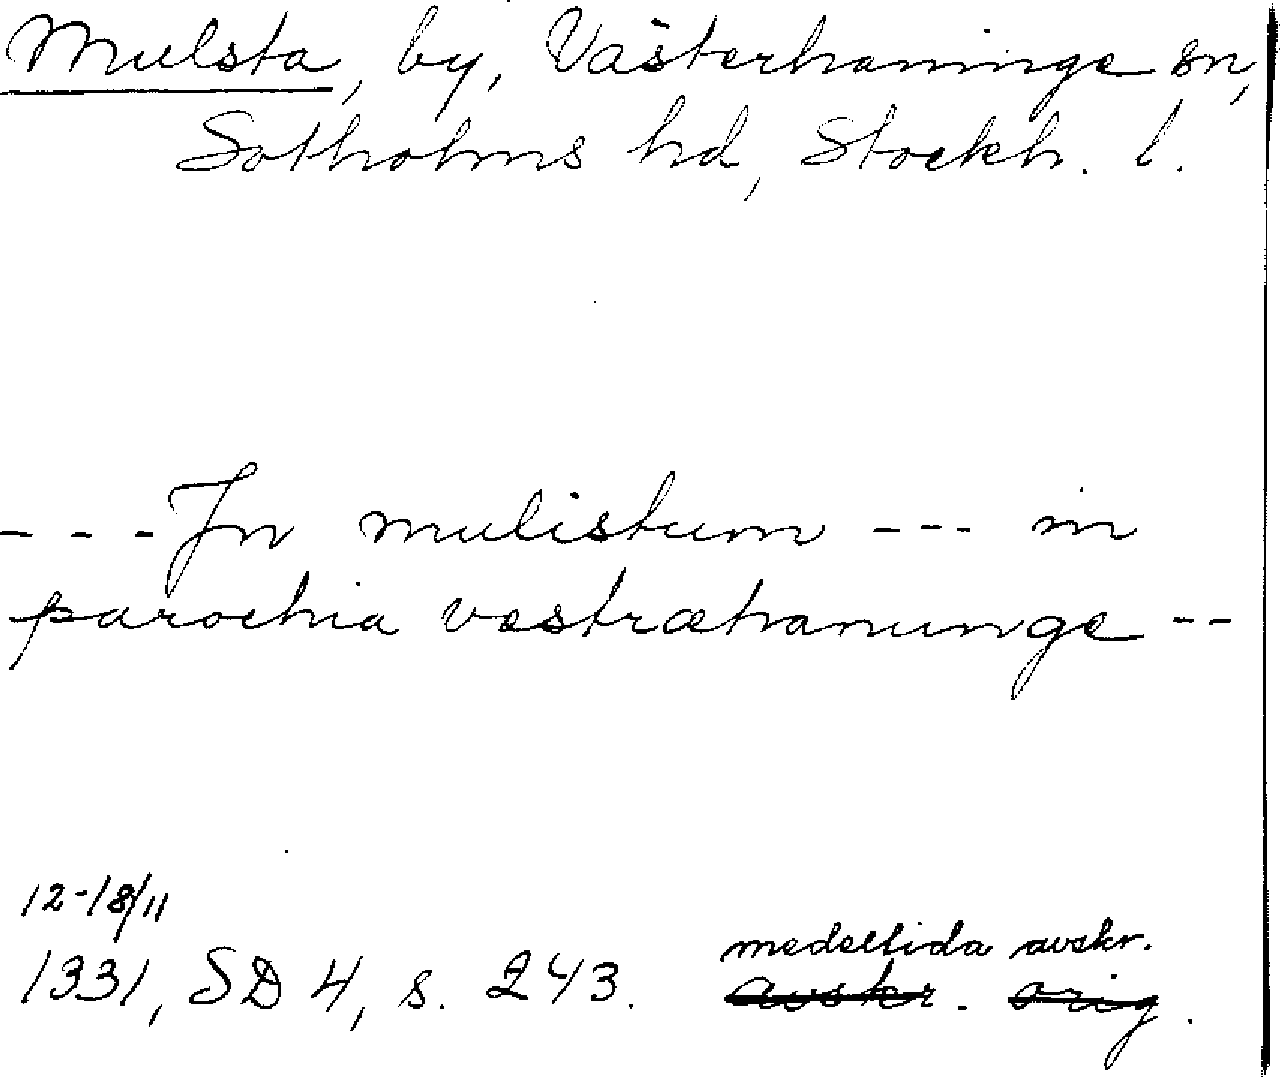 Mulsta, by, Västerhaninge sn,
Sotholms hd, Stockh. l.
- - - Jn mulistum - - - in
parochia væstræhanunge - -
12-18/11
medeltida avskr.
1331, SD 4, s. 243. avskr. orig.